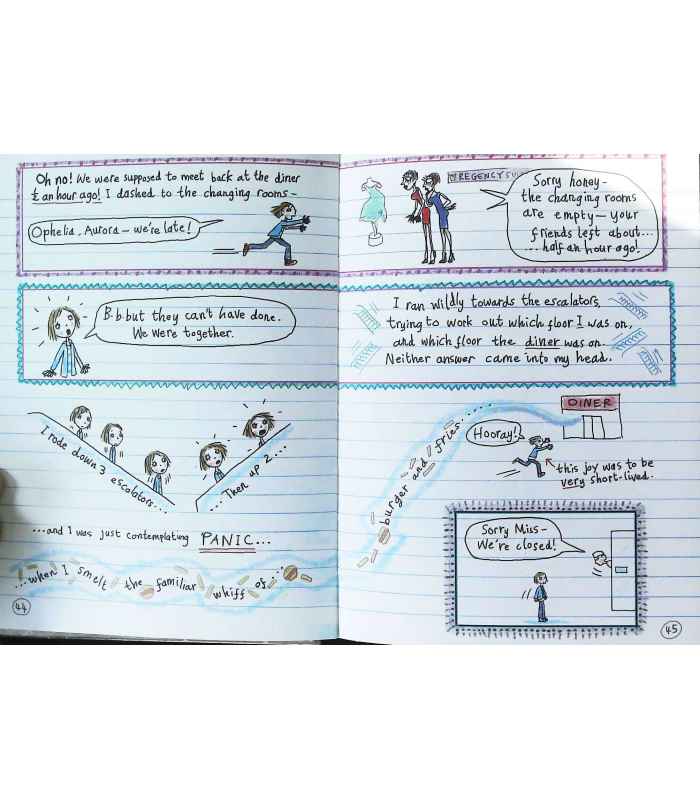 Oh no! We were supposed to meet back at the diner
½ an hour ago! I dashed to the changing rooms –
Ophelia, Aurora – we're late!
REGENCY
Sorry honey –
the changing rooms
are empty – your
friends left about...
...half an hour ago!
B.b.but they can't have done.
We were together.
I ran wildly towards the escalators,
trying to work out which floor I was on,
and which floor the diner was on.
Neither answer came into my head.
I rode down 3 escalators...
...Then up 2...
...and I was just contemplating PANIC...
...when I smelt the familiar whiff of...
44
burger and fries.....
DINER
Hooray!
this joy was to be
very short-lived.
Sorry Miss –
We're closed!
45